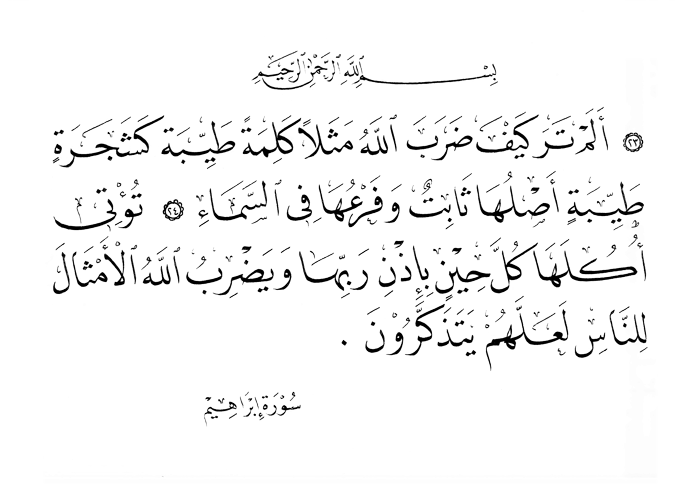 بِسْمِ ٱللَّهِ ٱلرَّحْمَٰنِ ٱلرَّحِيمِ
٢٣ أَلَمْ تَرَ كَيْفَ ضَرَبَ ٱللَّهُ مَثَلًا كَلِمَةً طَيِّبَةً كَشَجَرَةٍ
طَيِّبَةٍ أَصْلُهَا ثَابِتٌ وَفَرْعُهَا فِى ٱلسَّمَاءِ ٢٤ تُؤْتِى
أُكُلَهَا كُلَّ حِيْنٍ بِإِذْنِ رَبِّهَا وَيَضْرِبُ ٱللَّهُ ٱلْأَمْثَالَ
لِلنَّاسِ لَعَلَّهُمْ يَتَذَكَّرُوْنَ .
سُوْرَة إِبْرَاهِيْم